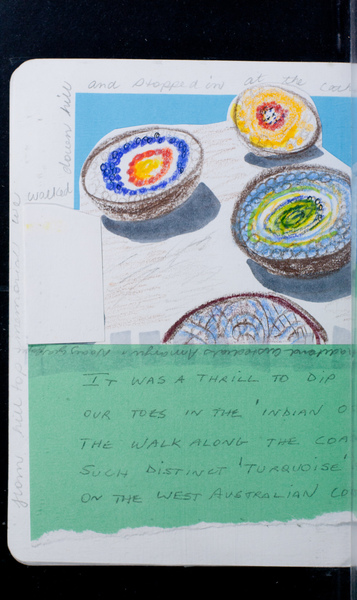 from hill top memorial we
walked down hill
and stopped in at the
IT WAS A THRILL TO DIP
OUR TOES IN THE 'INDIAN O
THE WALK ALONG THE COA
SUCH DISTINCT 'TURQUOISE'
ON THE WEST AUSTRALIAN CO